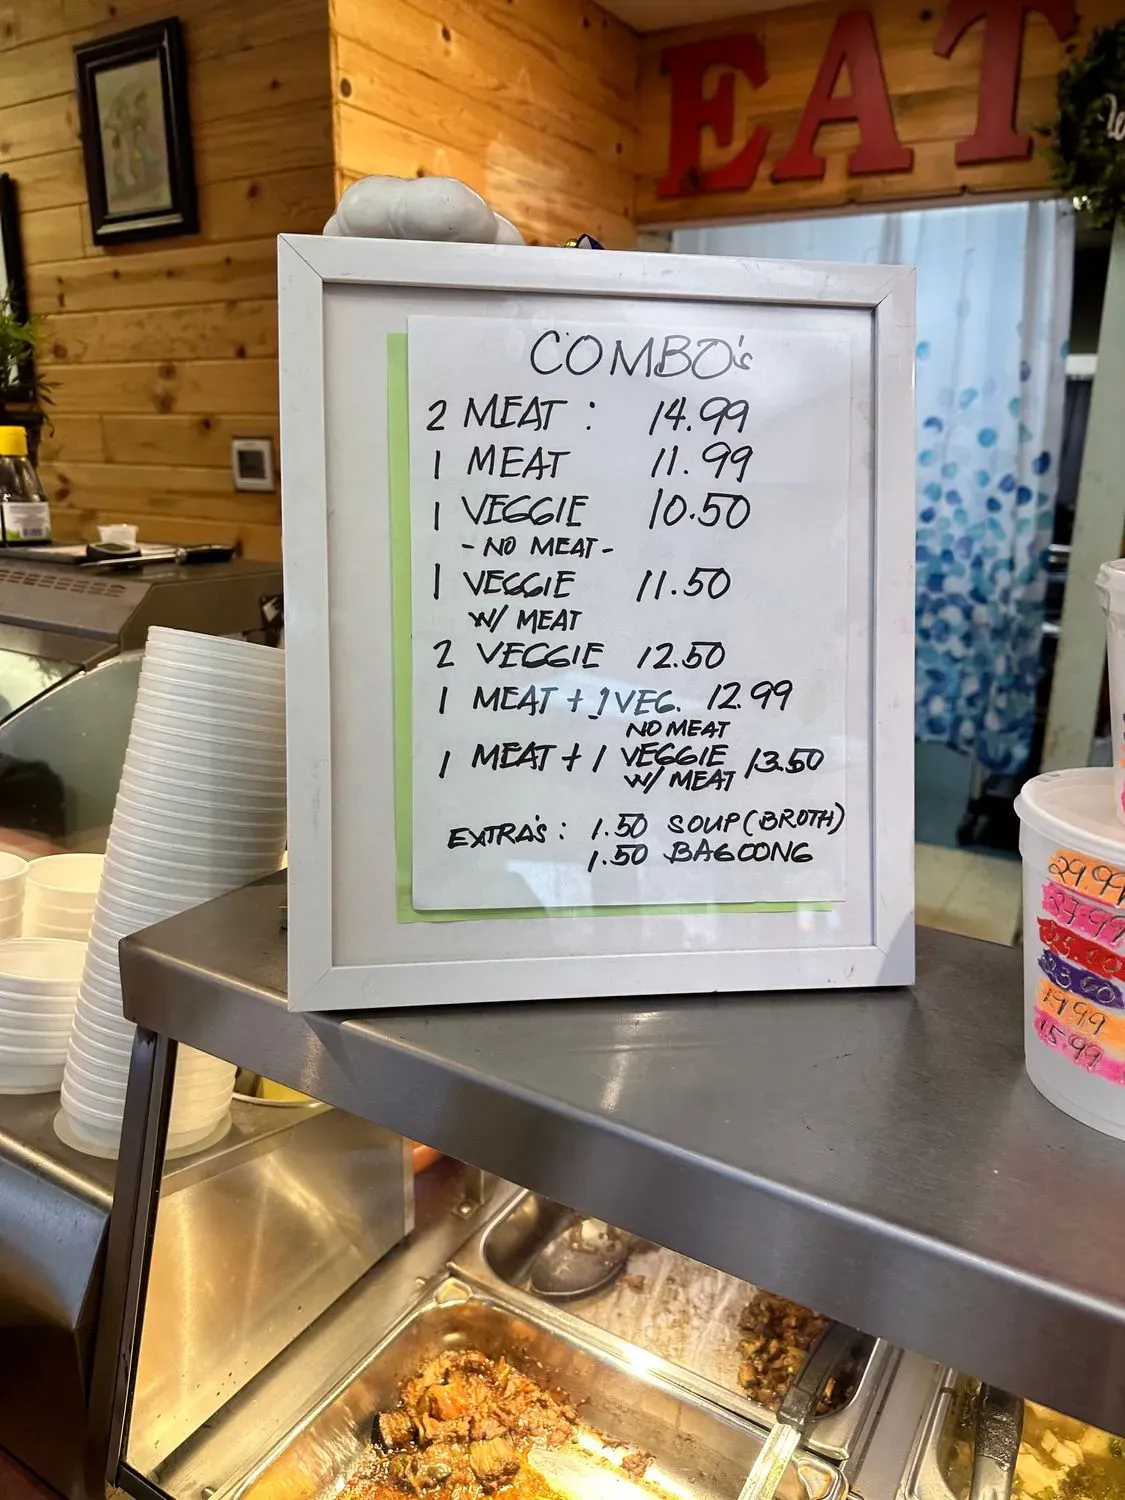 EAT
COMBO's
2 MEAT : 14.99
1 MEAT 11.99
1 VEGGIE 10.50
- NO MEAT -
1 VEGGIE 11.50
W/ MEAT
2 VEGGIE 12.50
1 MEAT + 1 VEG. 12.99
NO MEAT
1 MEAT + 1 VEGGIE 13.50
W/ MEAT
EXTRA'S : 1.50 SOUP (BROTH)
1.50 BAGOONG
29.99
27.99
25.00
23.00
19.99
15.99